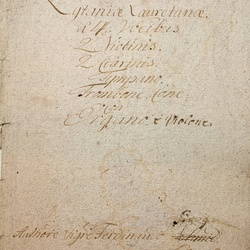 Lytaniæ Lauretanæ.
à 4. Vocibus
2 Violinis.
2 Clarinis.
Tympano.
Trombone Conc:
Con
Organo è Violone.
Authore Sigre Ferdinando